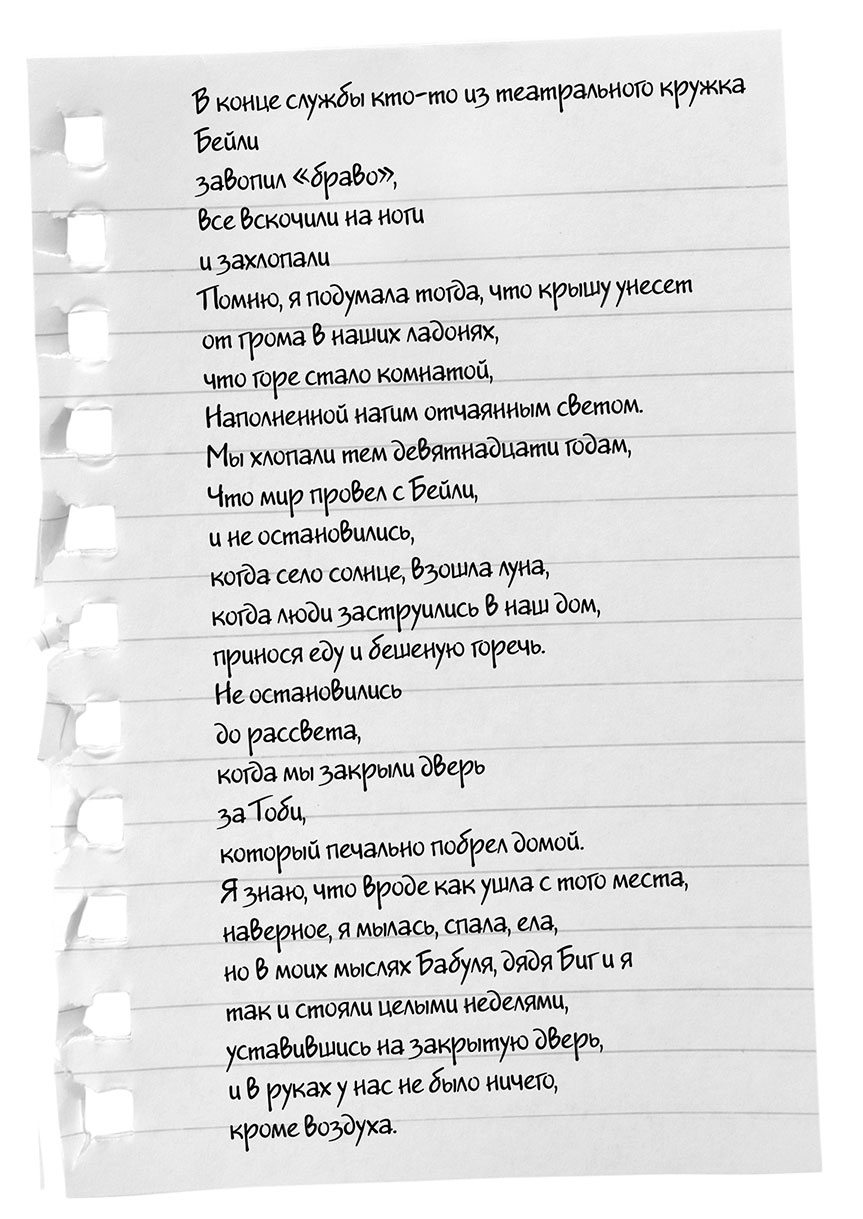 В конце службы кто-то из театрального кружка
Бейли
завопил «браво»,
все вскочили на ноги
и захлопали
Помню, я подумала тогда, что крышу унесет
от грома в наших ладонях,
что горе стало комнатой,
Наполненной нагим отчаянным светом.
Мы хлопали тем девятнадцати годам,
Что мир провел с Бейли,
и не остановились,
когда село солнце, взошла луна,
когда люди заструились в наш дом,
принося еду и бешеную горечь.
Не остановились
до рассвета,
когда мы закрыли дверь
за Тоби,
который печально побрел домой.
Я знаю, что вроде как ушла с того места,
наверное, я мылась, спала, ела,
но в моих мыслях Бабуля, дядя Биг и я
так и стояли целыми неделями,
уставившись на закрытую дверь,
и в руках у нас не было ничего,
кроме воздуха.